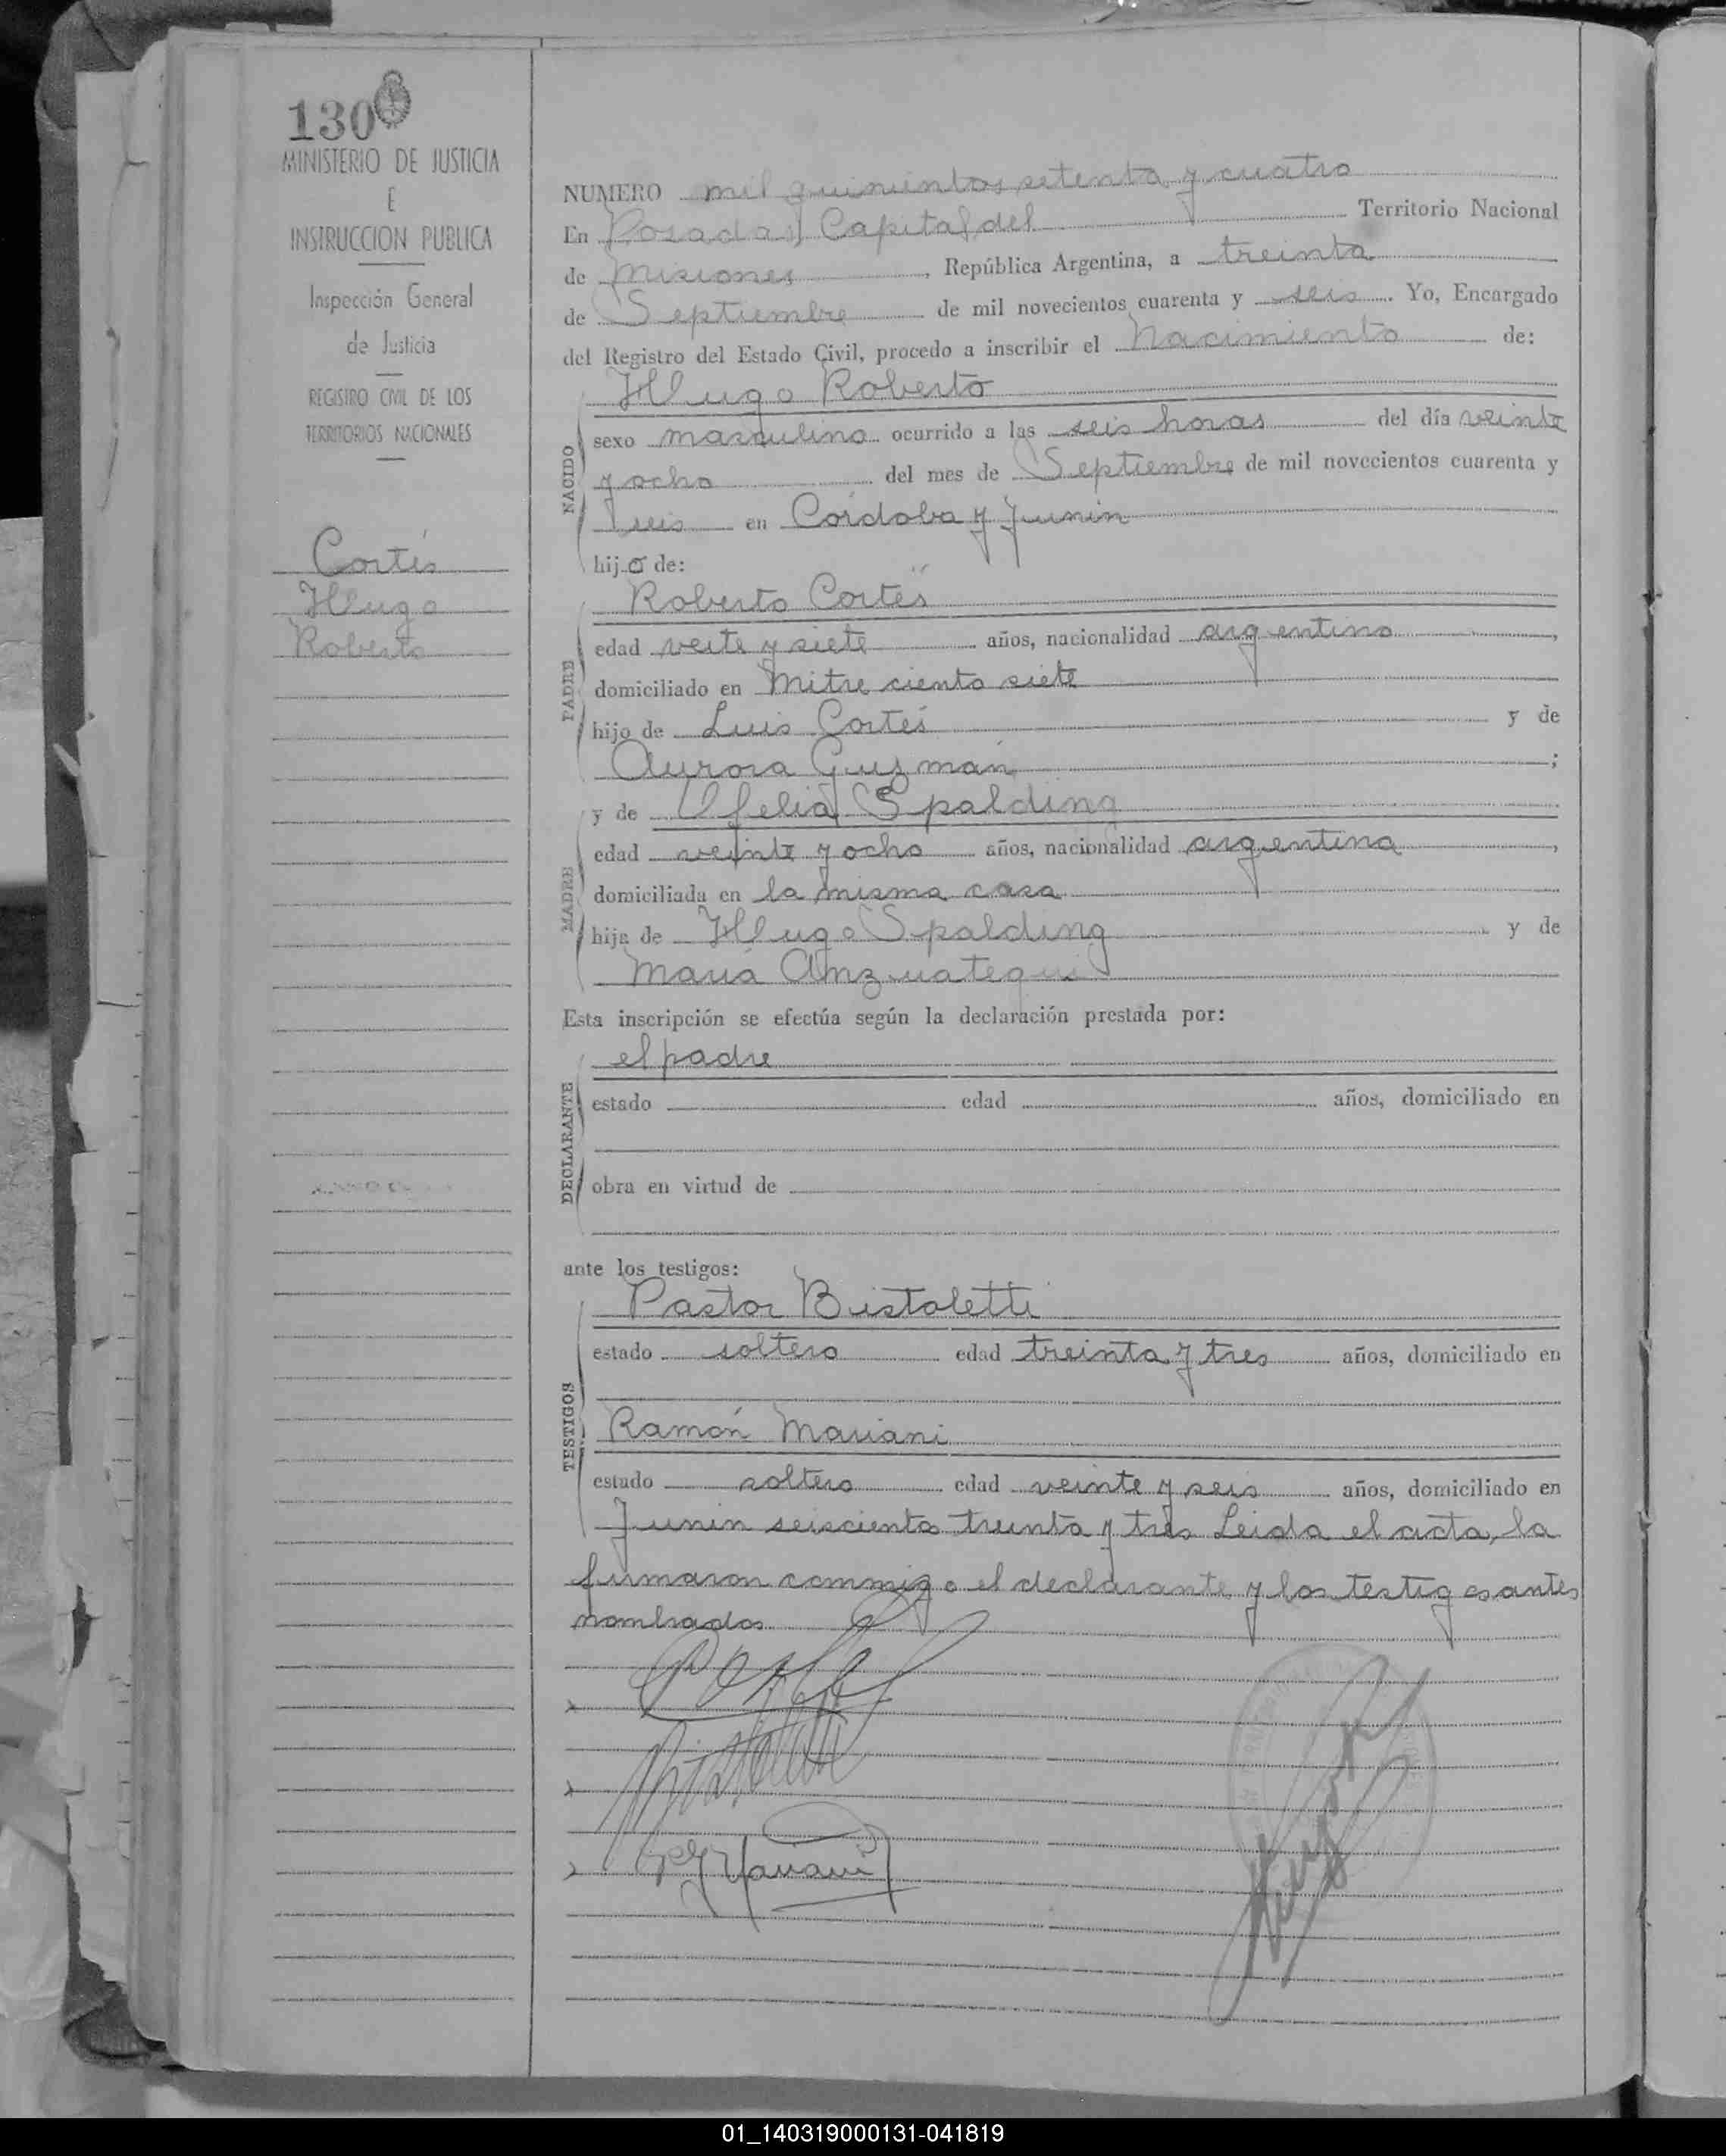 130
MINISTERIO DE JUSTICIA
E
INSTRUCCION PUBLICA
Inspección General
de Justicia
REGISTRO CIVIL DE LOS
TERRITORIOS NACIONALES
Cortés
Hugo
Roberto
NUMERO mil quinientos setenta y cuatro
En Posadas, Capital del Territorio Nacional
de Misiones, República Argentina, a treinta
de Septiembre de mil novecientos cuarenta y seis. Yo, Encargado
del Registro del Estado Civil, procedo a inscribir el Nacimiento de:
NACIDO
Hugo Roberto
sexo masculino ocurrido a las seis horas del día veinte
y ocho del mes de Septiembre de mil novecientos cuarenta y
seis en Córdoba y Junín
hijo de:
PADRE
Roberto Cortés
edad veite y siete años, nacionalidad argentino,
domiciliado en Mitre ciento siete
hijo de Luis Cortés y de
Aurora Guzmán;
MADRE
y de Ofelia Spalding
edad veinte y ocho años, nacionalidad argentina,
domiciliada en la misma casa
hija de Hugo Spalding y de
María Amzuategui
Esta inscripción se efectúa según la declaración prestada por:
DECLARANTE
el padre
estado edad años, domiciliado en
obra en virtud de
ante los testigos:
TESTIGOS
Pastor Bistoletti
estado soltero edad treinta y tres años, domiciliado en
Ramón Mariani
estado soltero edad veinte y seis años, domiciliado en
Junin seiscientos treinta y tres Leida el acta, la
firmaron conmigo el declarante y los testigos antes
nombrados
01_140319000131-041819